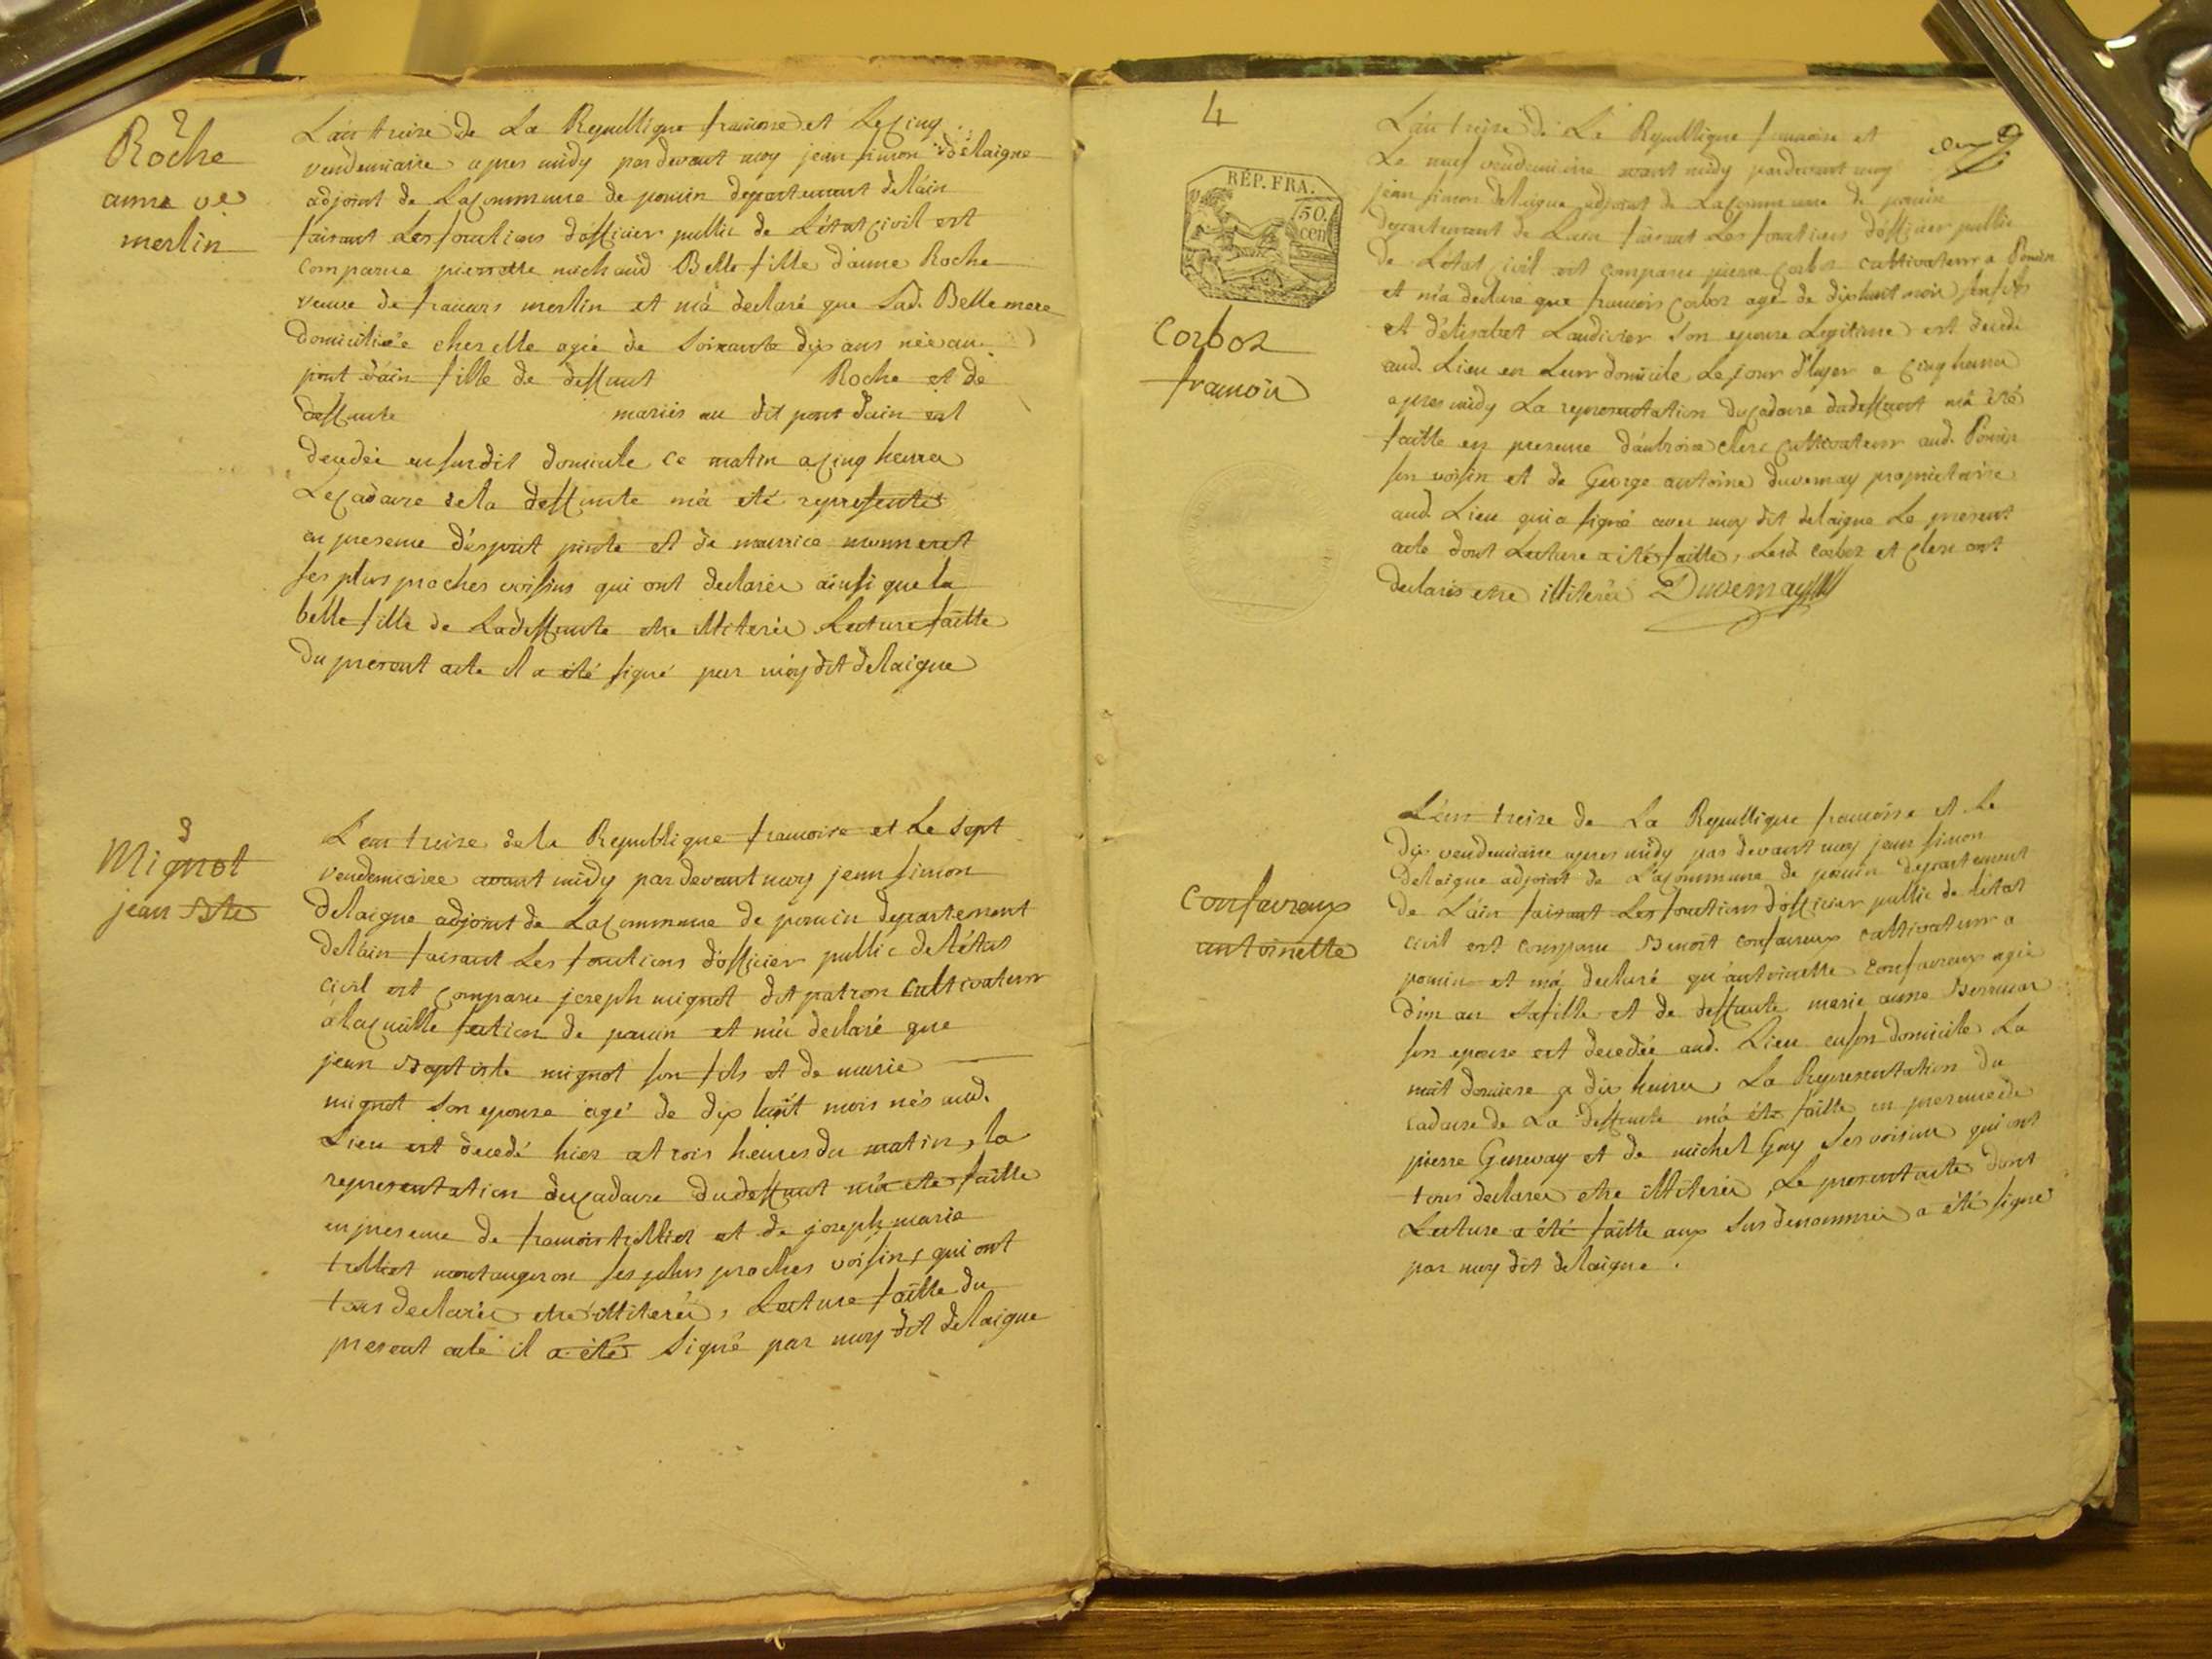 2
Roche
anne ve
merlin
L'an treize de La Republique francoise et Le cinq
vendemiaire apres midy pardevant moy jean simon delaigne
adjoint de La commune de poncin departement de l'ain
faisant Les fonctions d'officier public de L'état civil est
comparue pierrette michaud Belle fille d'anne Roche
veuve de francois merlin et m'a declaré que Lad. Belle mere
domiciliée ches elle agée de soixante dix ans née au
pont d'ain fille de deffunt Roche et de
deffunte mariés au dit pont dain est
decedée en susdit domicile ce matin a cinq heures
Le cadavre de la deffunte m'a eté representé
en presence d'esprit et de maurice monneret
ses plus proches voisins qui ont declarés ainsi que la
belle fille de La deffunte etre illiterés Lecture faitte
Du present acte il a été signé par moy dit delaigne
3
Mignot
jean Bte
L'an treize de la Republique francoise et Le sept
vendemiaire avant midy pardevant moy jean simon
delaigne adjoint de La commune de poncin departement
de lain faisant Les fonctions d'officier public de l'état
civil est comparu joseph mignot dit patron cultivateur
a la section de poncin et m'a declaré que
jean Baptiste mignot son fils et de marie
mignot son epouse agé de dix huit mois nés aud.
Lieu est decedé hier a trois heures du matin, la
representation du cadavre du deffunt m'a ete faitte
en presence de francois trolliet et de joseph marie
trolliet montangeron ses plus proches voisins, qui ont
tous declarés etre illiterés, Lecture faitte du
present acte il a été signé par moy dit delaigne
4
RÉP. FRA.
50.
cen
Corboz
francois
L'an treize de La Republique francoise et
Le neuf vendemiaire avant midy pardevant moy
jean simon delaigne adjoint de La commune de poncin
departement de Lain faisant Les fonctions d'officier public
de L'état civil est comparu pierre Corboz cultivateur a Poncin
et m'a declaré que francois corboz agé de dix huit mois son fils
et d'elisabet Laudivier son epouse Legitime est decedé
aud. Lieu en Leur domicile Le jour d'hyer a cinq heures
apres midy La representation du cadavre du deffunt m'a été
faitte en presence d'ambroise clerc cultivateur aud. Poncin
son voisin et de George antoine duvernay proprietaire
aud. Lieu qui a signé avec moy dit delaigne Le present
acte dont Lecture a été faitte, Lesd. corboz et clerc ont
declarés etre illiterés Duvernay
Confavreux
antoinette
L'an treize de La Republique francoise et Le
dix vendemiaire apres midy pardevant moy jean simon
delaigne adjoint de La commune de poncin departement
de L'ain faisant Les fonctions d'officier public de l'état
civil est comparu Benoit confavreux cultivateur a
poncin et m'a declaré qu'antoinette Confavreux agée
d'un an sa fille et de deffunte marie anne
son epouse est decedée aud. Lieu en son domicile La
nuit derniere a dix heures, La Representation du
cadavre de La deffunte m'a été faitte en presence de
pierre Genevay et de michel Guy ses voisins qui ont
tous declarés etre illiterés, Le present acte dont
Lecture a été faitte aux sus denommés a été signé
par moy dit delaigne.